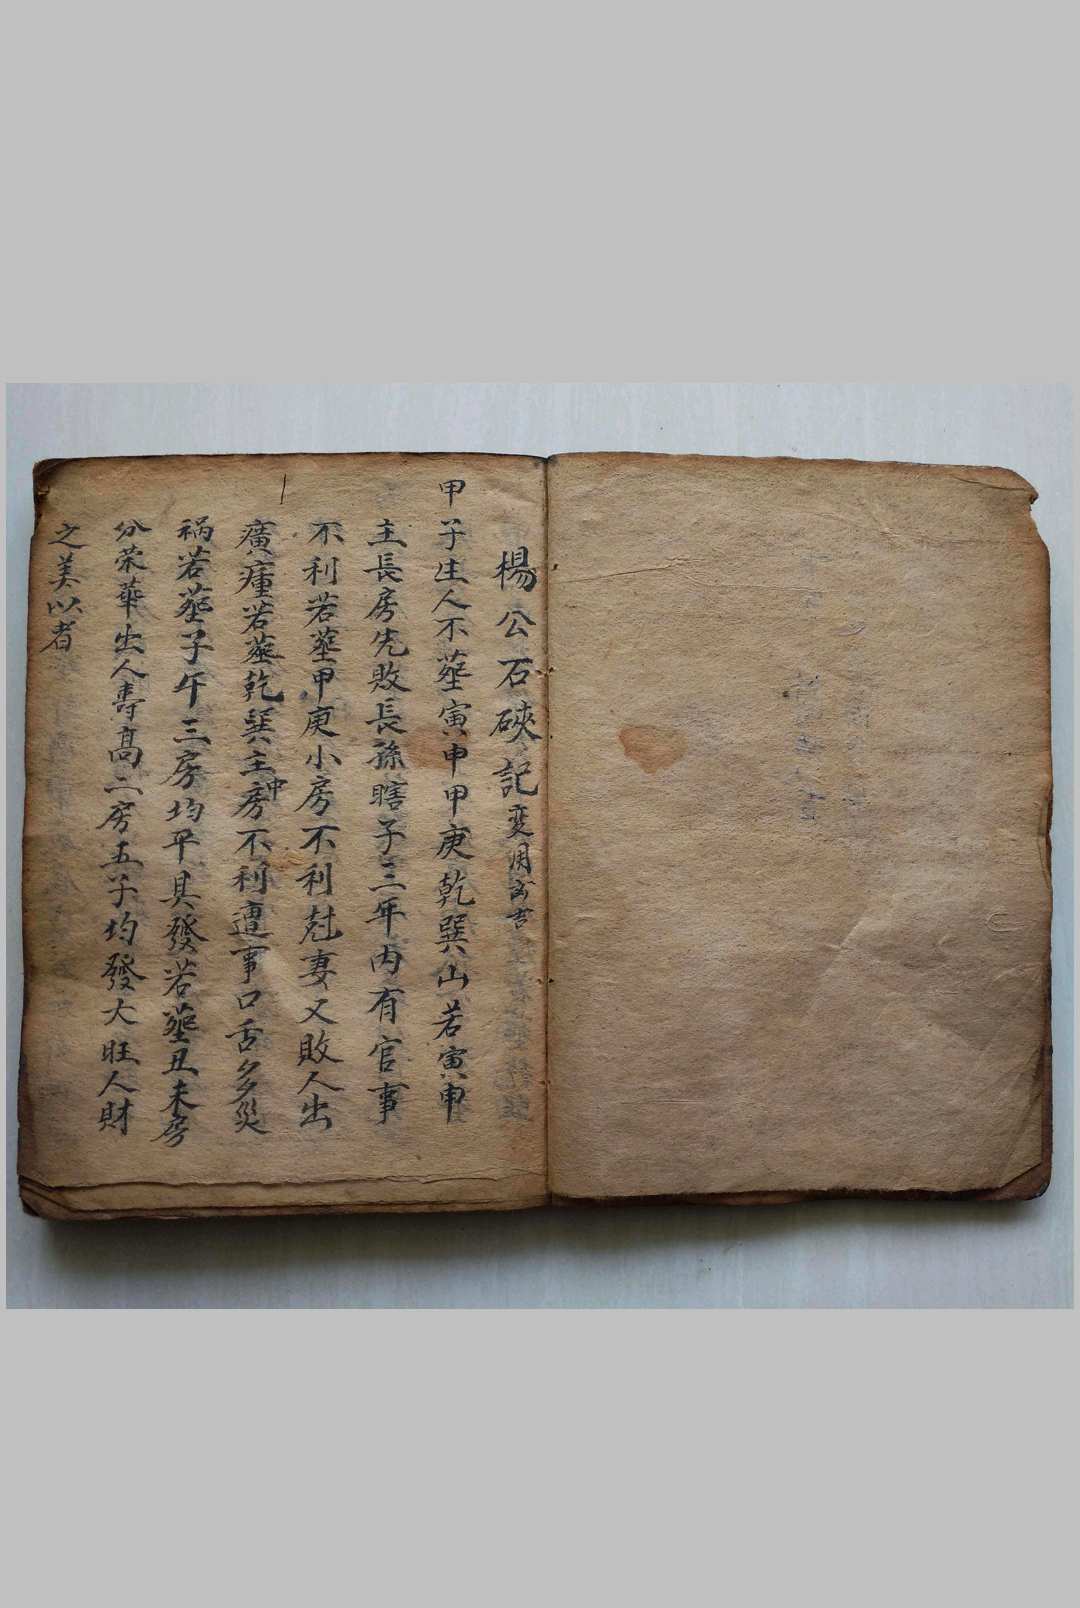 楊公石硤記 変用玄吉
甲子生人不葬寅申甲庚乾巽山若寅申
主長房先敗長孫瞎子三年内有官事
不利若葬甲庚小房不利尅妻又敗人出
廣瘇若葬乾巽主中房不利遭事口舌多災
祸若葬子午三房均平具發若葬丑未房
分荣華出人壽髙二房五子均發大旺人財
之美以者